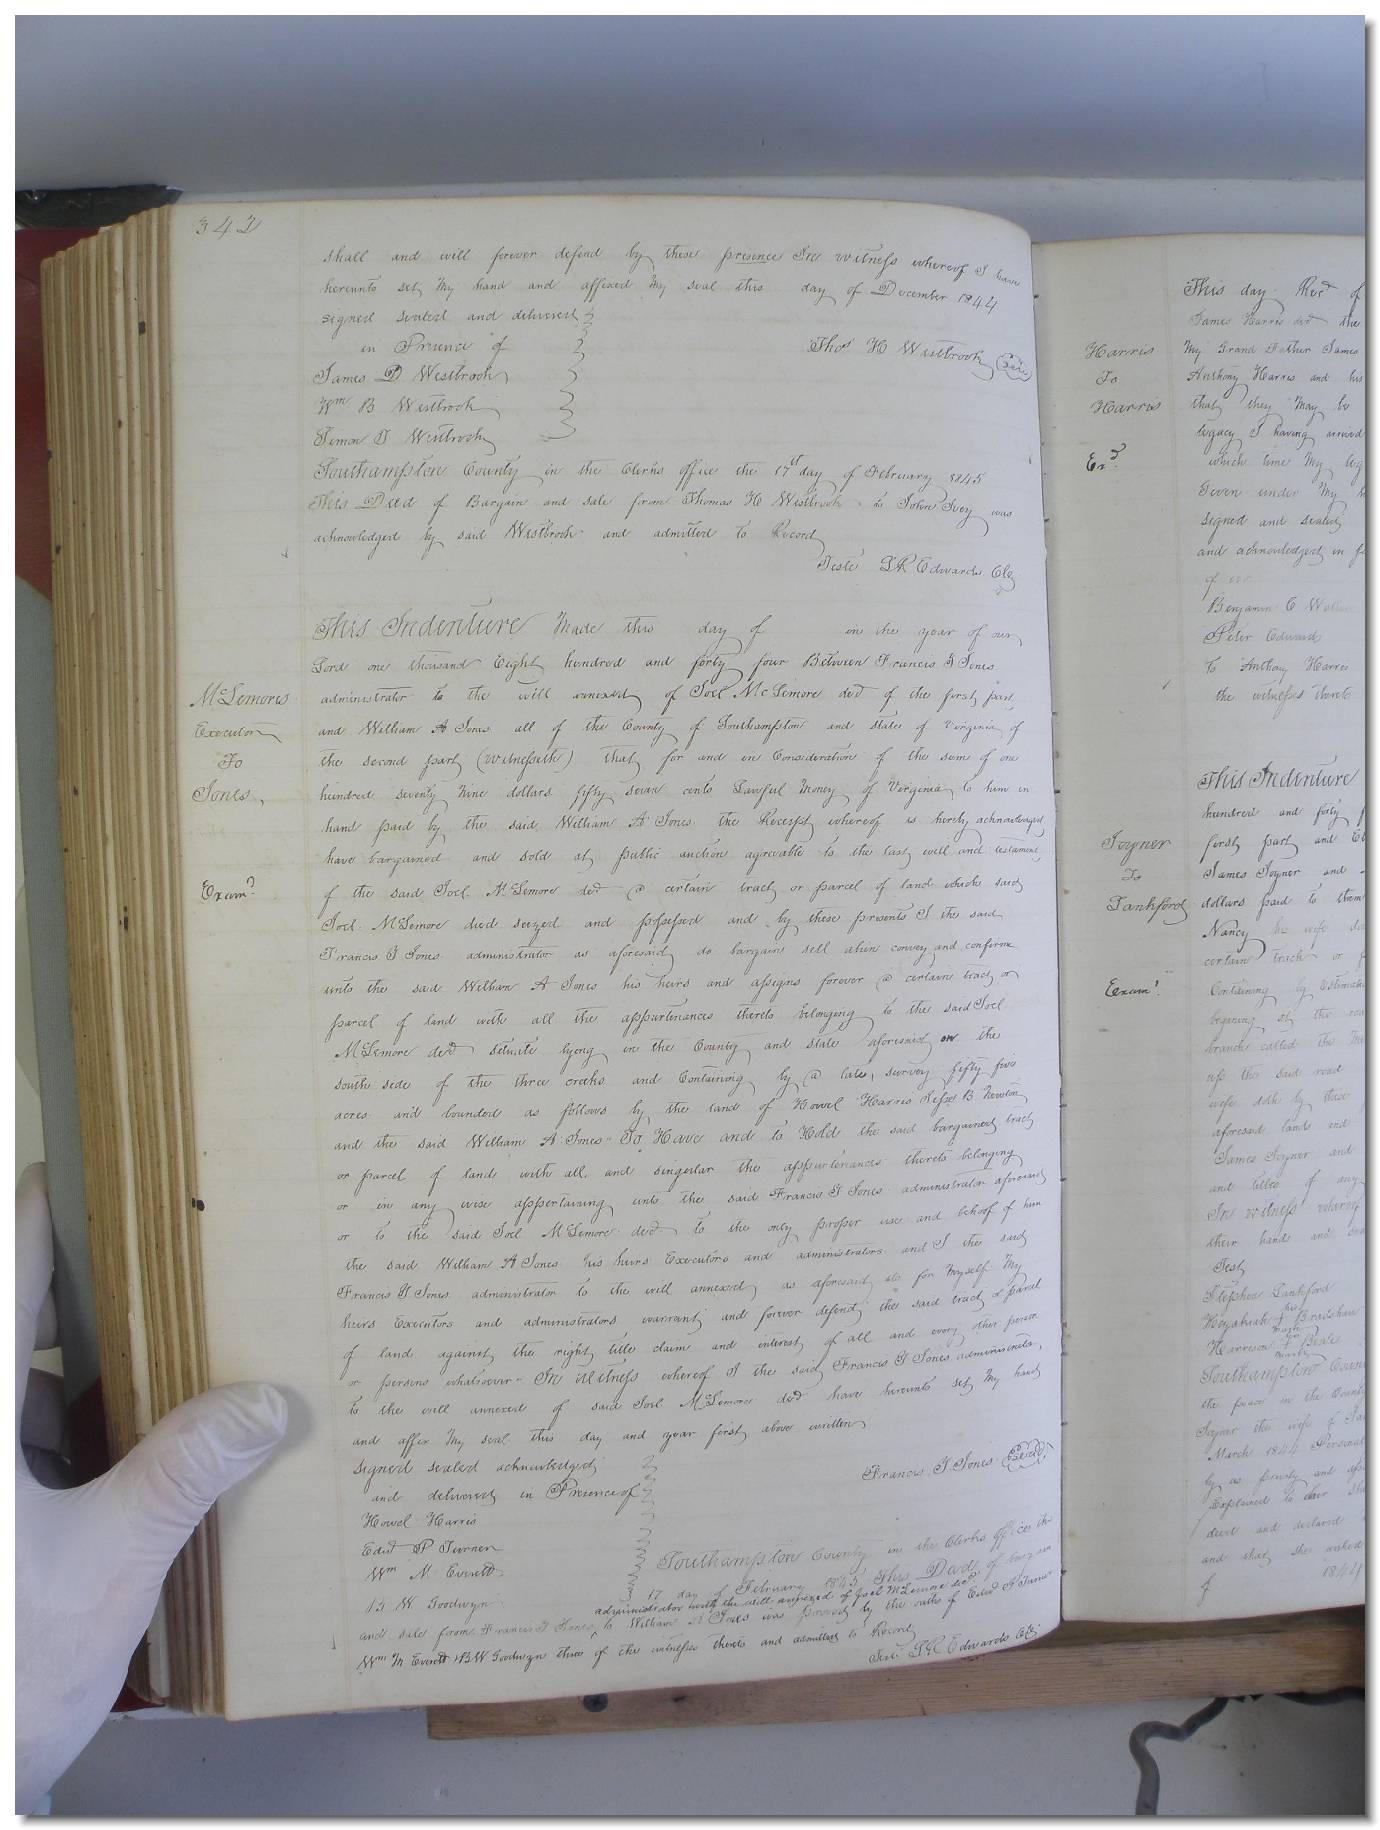 342
shall and will forever defend by these presence In witness whereof I have
hereunto set my hand and affixed my seal this day of December 1844
signed sealed and delivered
in Presence of
Thos H Westbrook Seal
James D Westbrook
Wm B Westbrook
Simon T Westbrook
Southampton County in the Clerks office the 17th day of February 1845
This Deed of Bargain and sale from Thomas H Westbrook to John Ivey was
acknowledged by said Westbrook and admitted to Record
Teste LR Edwards Clk
McLemores
Executor
To
Jones
Exam.d
This Indenture Made this day of in the year of our
Lord one thousand Eight hundred and forty four Between Francis T Jones
administrator to the will annexed of Joel McLemore decd of the first part
and William A Jones all of the County of Southampton and state of Virginia of
the second part (witnesseth) that for and in Consideration of the sum of one
hundred seventy Nine dollars fifty seven cents Lawful Money of Virginia to him in
hand paid by the said William A Jones the Receipt whereof is hereby acknowledged
have bargained and sold at public auction agreeable to the last will and testament
of the said Joel McLemore decd @ certain tract or parcel of land which said
Joel McLemore died seized and possessed and by these presents I the said
Francis T Jones administrator as aforesaid do bargain sell alien convey and confirm
unto the said William A Jones his heirs and assigns forever @ certain tract or
parcel of land with all the appurtenances thereto belonging to the said Joel
McLemore decd situate lyeng in the County and state aforesaid on the
south side of the three creeks and Containing by @ late survey fifty five
acres and bounded as follows by the land of Howel Harris B. Newton
and the said William A Jones To Have and to Hold the said bargained tract
or parcel of land with all and singular the appurtenances thereto belonging
or in any wise appertaining unto the said Francis T Jones administrator aforesaid
or to the said Joel McLemore decd to the only proper use and behoof of him
the said William A Jones his heirs Executors and administrators and I the said
Francis T Jones administrator to the will annexed as aforesaid do for myself My
heirs Executors and administrators warrant and forever defend the said tract or parcel
of land against the right title claim and interest of all and every other person
or persons whatsoever In Witness whereof I the said Francis T Jones administrator
to the will annexed of said Joel McLemore decd have hereunto set My hand
and affix My seal this day and year first above written
signed sealed acknowledged
and delivered in Presence of
Francis T Jones Seal
Howel Harris
Edwd P Turner
Wm M Everett
B W Goodwyn
Southampton County in the Clerks office the
17 day of February 1845 This Deed of bargain
administrator with the will annexed of Joel McLemore decd
and sale from Francis T Jones to William A Jones was proved by the oaths of Edwd P Turner
Wm M Everett & BW Goodwyn three of the witnesses thereto and admitted to Record
Teste LR Edwards Clk
Harris
To
Harris
Exd.
This day Recd of
James Harris decd the
My Grand Father James
Anthony Harris and his
that they May be
legacy I having arrived
which time My leg
Given under My
signed and sealed
and acknowledged in
of
Benjamin C
Peter Edward
To Anthony Harris
the witnesses thereto
Joyner
To
Lankford
Exam.d
This Indenture
hundred and forty
first part and
James Joyner and
dollars paid to them
Nancy his wife
certain track or
Containing by Estimation
begining at the
branch called the
up the said road
wife doth by these
aforesaid lands and
James Joyner and
and titles of any
In witness whereof
their hands and
Test
Stephen Lankford
his
Hezakiah + Bradshaw
mark
Harrison Beale
Southampton County
the peace in the County
Joyner the wife of
March 1844 Personal
by us privily and
Explained to her
deed and declared
and that she wished
of 1844